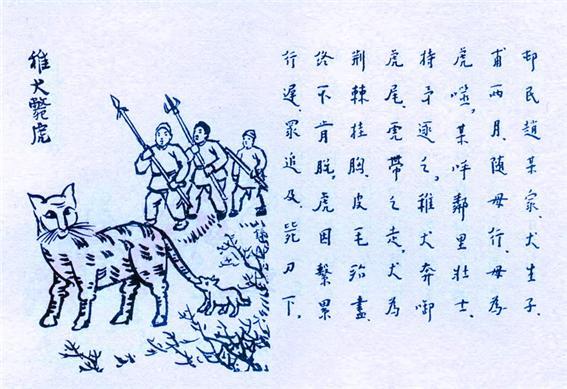 邨民趙某家、犬生子、
甫兩月、隨母行、母為
虎噬、某呼鄰里壯士、
持矛逐之、稚犬奔啣
虎尾、虎帶之走、犬為
荊棘挂胸、皮毛殆盡、
終不肯脫、虎因繫累
行遲、眾追及、毙刃下。
稚犬斃虎